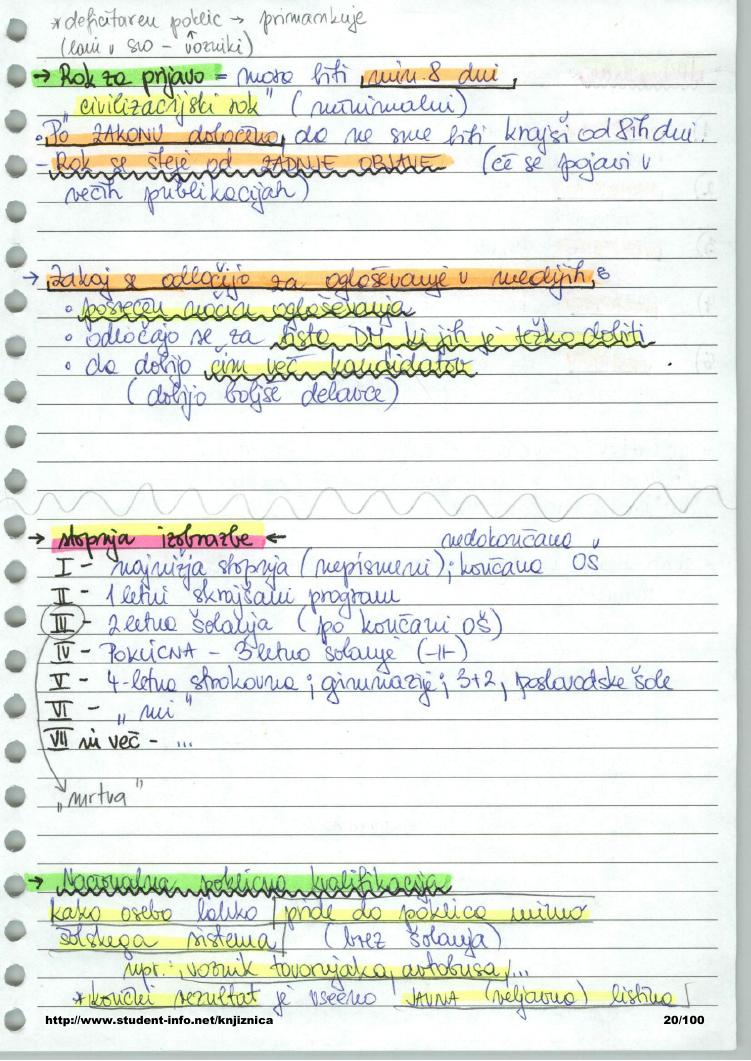 *deficitaren poklic → primankuje
(lani v SLO - vozniki)
→ Rok za prijavo = mora biti min. 8 dni
"civilizacijski rok" (minimalni)
• Po ZAKONU določeno, da ne sme biti krajši od 8ih dni.
- Rok se šteje od ZADNJE OBJAVE (če se pojavi v
večih publikacijah)
→ Zakaj se odločijo za oglaševanje v medijih:
• posrečen način oglaševanja
• odločajo se za tista DM, ki jih je težko dobiti
• da dobijo čim več kandidatov
(dobijo boljše delavce)
→ stopnja izobrazbe ←
nedokončana
I - najnižja stopnja (nepismeni); končana OŠ
II - 1 letni skrajšani program
III - 2 letna šolanja (po končani OŠ)
IV - POKLICNA - 3 letno šolanje (-11-)
V - 4-letna strokovna; gimnazije; 3+2, poslovodske šole
VI - "mi"
VII in več - ...
"mrtva"
→ Nacionalna poklicna kvalifikacija
kako oseba lahko pride do poklica mimo
šolskega sistema (brez šolanja)
npr.: voznik tovornjaka, avtobusa, ...
*končni rezultat je vseeno JAVNA (veljavna) listina
http://www.student-info.net/knjiznica
20/100